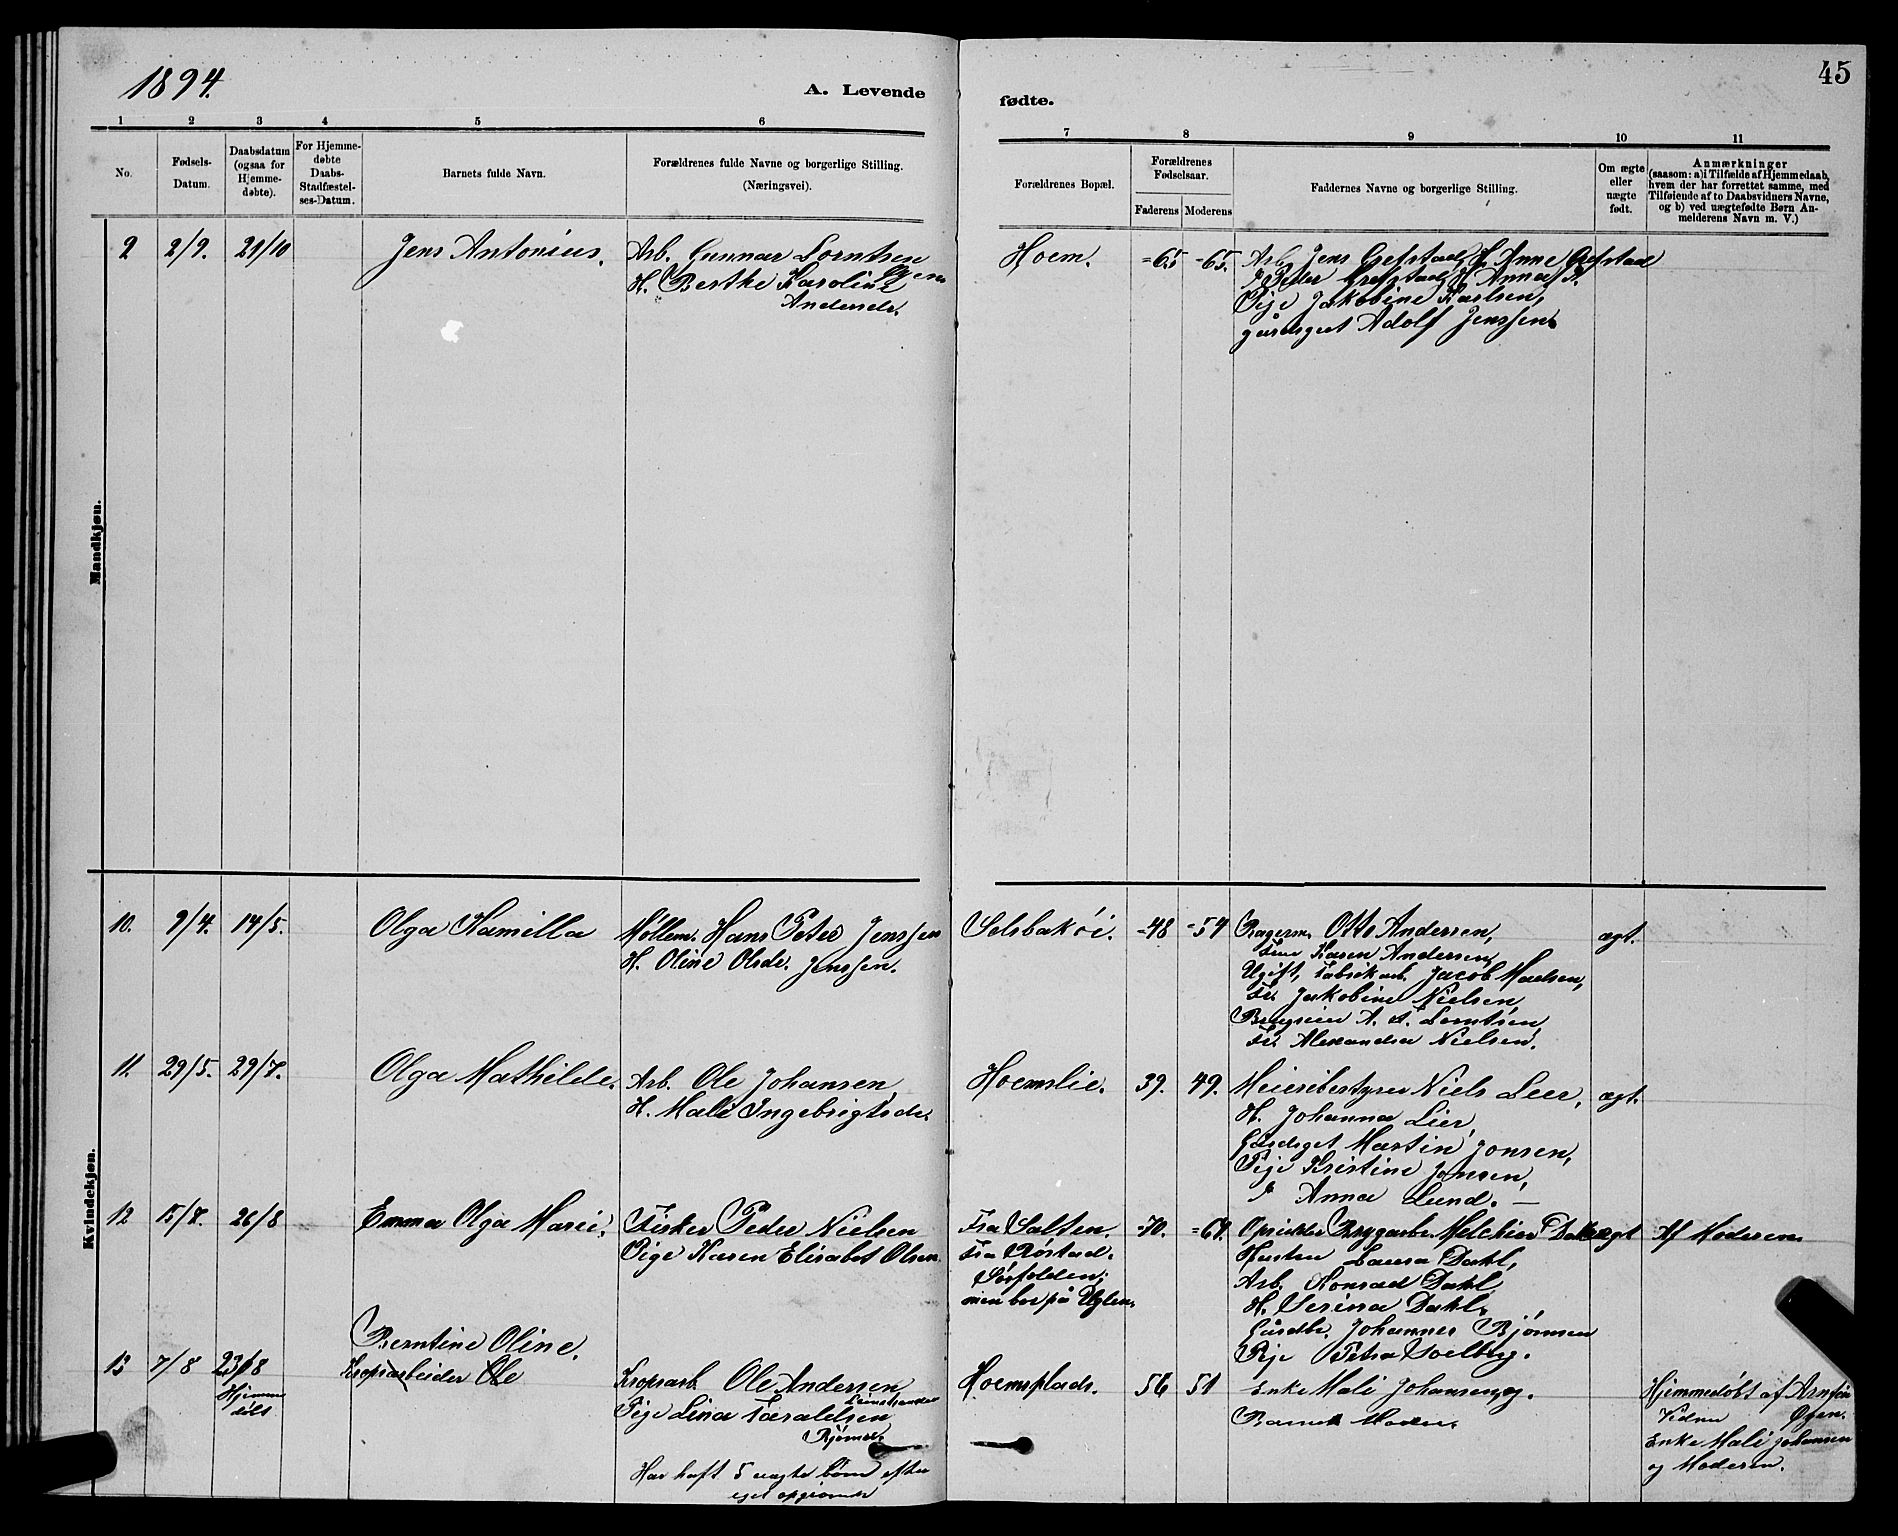 1894.
A. Levende
fødte.
45
1 2 3 4 5 6 7 8 9 10 11
No.
Fødsels-
Datum.
Daabsdatum
(ogsaa for
Hjemme-
døbte).
For Hjemme-
døbte
Daabs-
Stadfæstel-
ses-Datum.
Barnets fulde Navn.
Forældrenes fulde Navne og borgerlige Stilling.
(Næringsvei).
Forældrenes Bopæl.
Forældrenes
Fødselsaar.
Faderens Moderens
Faddernes Navne og borgerlige Stilling.
Om ægte
eller
uægte
født.
Anmærkninger
(saasom: a) i Tilfælde af Hjemmedaab,
hvem der har forrettet samme, med
Tilføiende af to Daabsvidners Navne,
og b) ved uægtefødte Børn An-
melderens Navn m. V.)
Mandkjøn.
9 2/9. 29/10 Jens Antonius.
Arb. Gunnar Lorntsen
H. Berthe Karoline
Andersdr.
Hoem. =65 =65.
Arb. Jens Grefstad, H. Anne Grefstad
Peder Grefstad, H. Anna
Pige Jakobine Karlsen,
Adolf Jenssen.
Kvindekjøn.
10. 9/4. 14/5. Olga Kamilla
Møllem. Hans Peter Jenssen
H. Oline Olsdr. Jenssen.
Selsbakøi. =48 =54
Bagerm. Otto Andersen,
Frue Karen Andersen,
Ugift, Fabrikarb. Jacob Madsen,
Fr. Jakobine Nielsen,
A. Lorntsen,
Fr. Alexandra Nielsen.
ægt.
11. 29/5. 29/7. Olga Mathilde.
Arb. Ole Johansen,
H. Mali Ingebrigtsdr.
Hoemslie. 39. 49.
Meieribestyrer Niels Leer,
H. Johanna Lier,
Martin Jonsen,
Pige Kristine Jonsen,
P Anna Lund. —
ægt.
12 15/7. 26/8 Emma Olga Marie.
Fisker Peder Nielsen
Pige Karen Elisabet Olsen.
Fra Salten.
Fra Røstad.
Sørfolden;
men bor på Uglen.
=70. =69.
Bryggarb. Melchior Dahl
Hustru Laura Dahl,
Arb. Konrad Dahl,
H. Serina Dahl,
Gårdbr. Johannes Bjørnsen
Pige Petra Solberg.
Af Moderen
13 7/8 23/8
Hjemme
døbt
Berntine Oline.
Kropsarbeider Ole
Kropsarb Ole Andersen
Leinstranden
Pige Lina Taraldsen
Har haft 5 uægte børn efter
eget opgivende
Hoemsplads. 56 51
Enke Mali Johansen og
Barnets Moder.
Hjemmedøbt af Arnfin
Vidner Øyen.
Enke Mali Johansen
og Moderen.